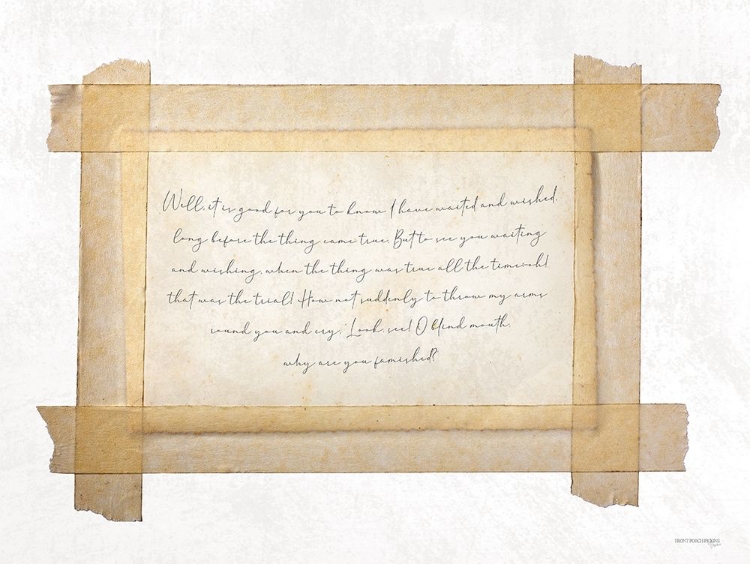 Well, it is good for you to know I have waited and wished,
long before the thing came true. But to see you waiting
and wishing, when the thing was true all the time—oh!
that was the trial! How not suddenly to throw my arms
round you and cry, 'Look, see! O blind mouth,
why are you famished?'